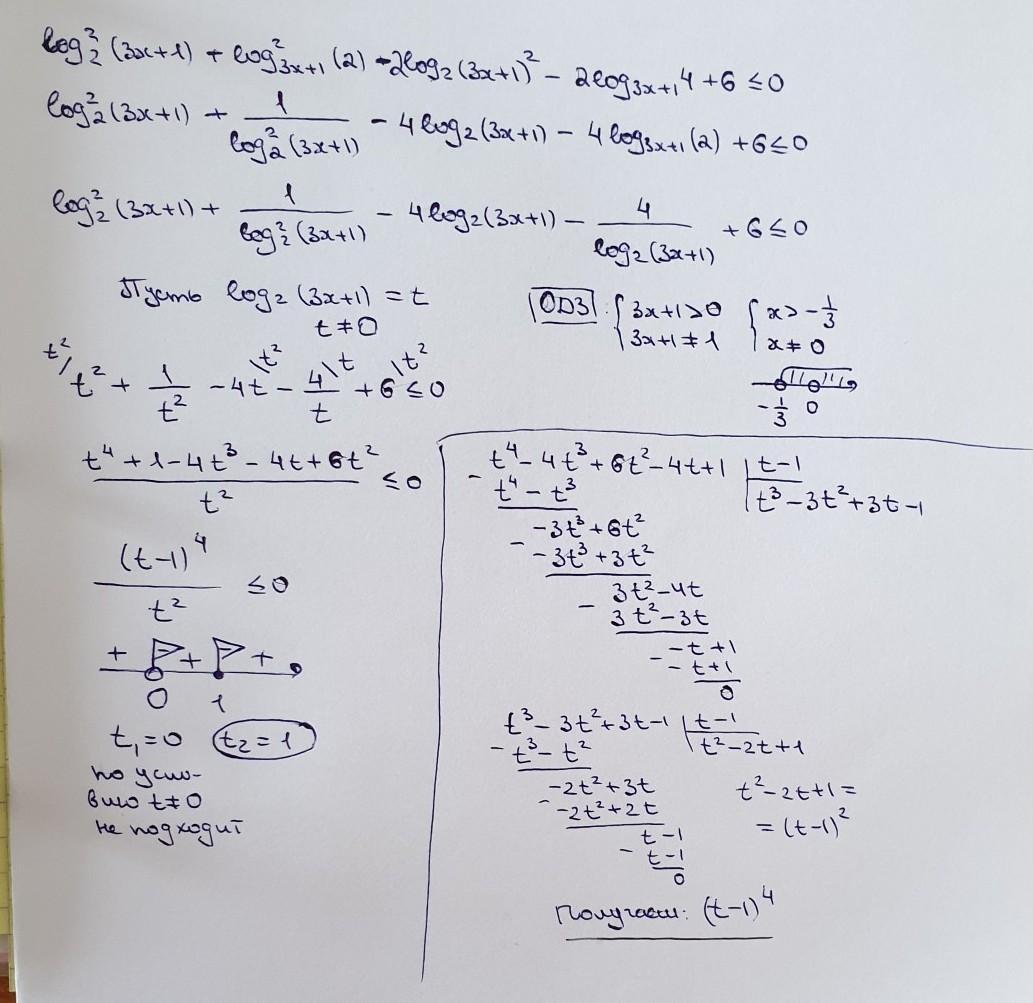 log₂²(3x+1) + log²₃ₓ₊₁(2) - 2log₂(3x+1)² - 2log₃ₓ₊₁4 + 6 ≤ 0
log₂²(3x+1) + 1/log₂²(3x+1) - 4log₂(3x+1) - 4log₃ₓ₊₁(2) + 6 ≤ 0
log₂²(3x+1) + 1/log₂²(3x+1) - 4log₂(3x+1) - 4/log₂(3x+1) + 6 ≤ 0
Пусть log₂(3x+1) = t
t ≠ 0
ОДЗ: { 3x+1>0 { x > -1/3
3x+1 ≠ 1 x ≠ 0
-1/3 0
t²/ \t² \t \t²
t² + 1/t² - 4t - 4/t + 6 ≤ 0
(t⁴ + 1 - 4t³ - 4t + 6t²)/t² ≤ 0
(t-1)⁴/t² ≤ 0
+ + +
0 1
t₁=0 t₂=1
по усло-
вию t≠0
не подходит
t⁴ - 4t³ + 6t² - 4t + 1 | t-1
- t⁴ - t³ | t³ - 3t² + 3t - 1
-3t³ + 6t²
- -3t³ + 3t²
3t² - 4t
- 3t² - 3t
-t + 1
- -t + 1
0
t³ - 3t² + 3t - 1 | t-1
- t³ - t² | t² - 2t + 1
-2t² + 3t
- -2t² + 2t
t - 1
- t - 1
0
t² - 2t + 1 =
= (t-1)²
Получаем: (t-1)⁴